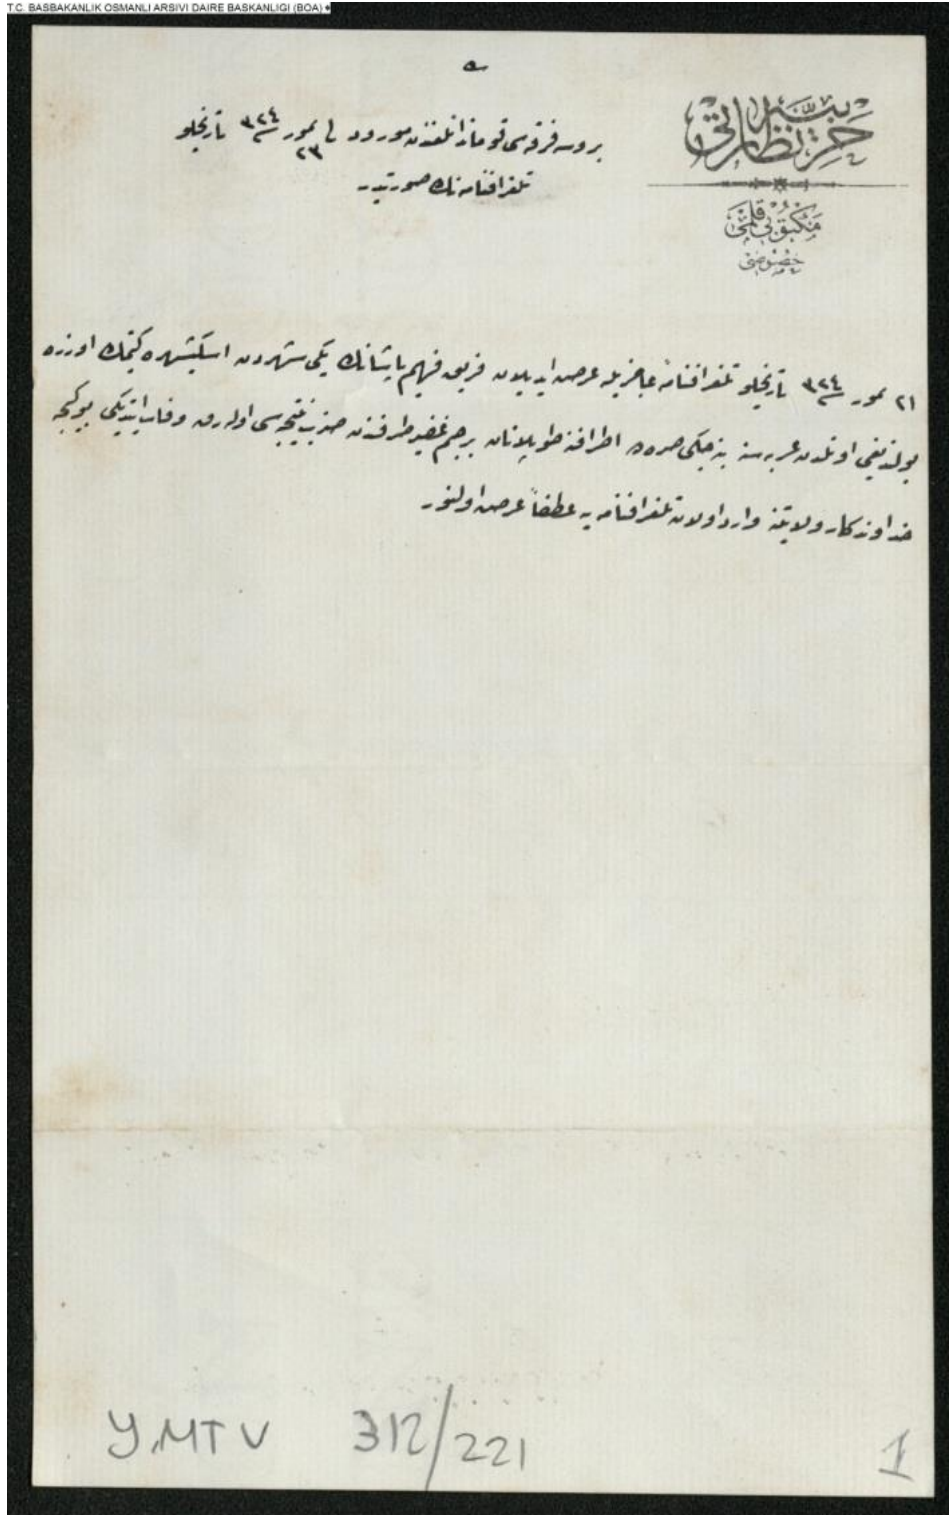 T.C. BASBAKANLIK OSMANLI ARSIVI DAIRE BASKANLIGI (BOA)
حربيه نظارتی
مكتوبی قلمی
خصوصی
بروسه فرقه‌سی قوماندانلغندن مورود فی ٢٣ تموز سنه ٣٢٤ تاریخلو
تلغرافنامه‌نك صورتیدر
٢١ تموز سنه ٣٢٤ تاریخلو تلغرافنامهٔ عاجزیله عرض ایدیلان فریق فهیم پاشانك یكی شهردن اسكیشهره كیتمك اوزره
بولندیغی اوتلدن عربه‌سنه بنه‌جكی صره‌ده اطرافنه طوپلانان بر جم غفیر طرفندن ضرب نتیجه‌سی اوله‌رق وفات ایتدیكی بو كیجه
خداوندكار ولایتنه وارد اولان تلغرافنامه‌یه عطفاً عرض اولنور
Y.MTV 312/221
1